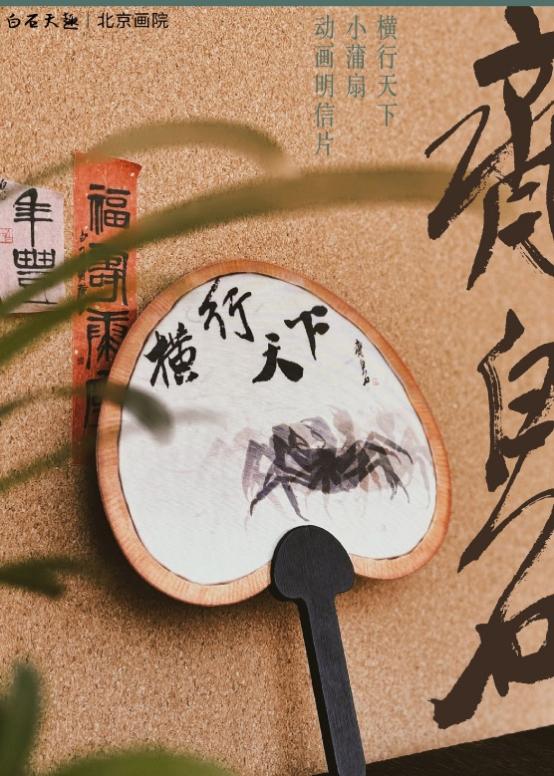 白石天趣 | 北京画院
横行天下
小蒲扇
动画明信片
齊白石
福壽康寧
年豐
横行天下
齊白石